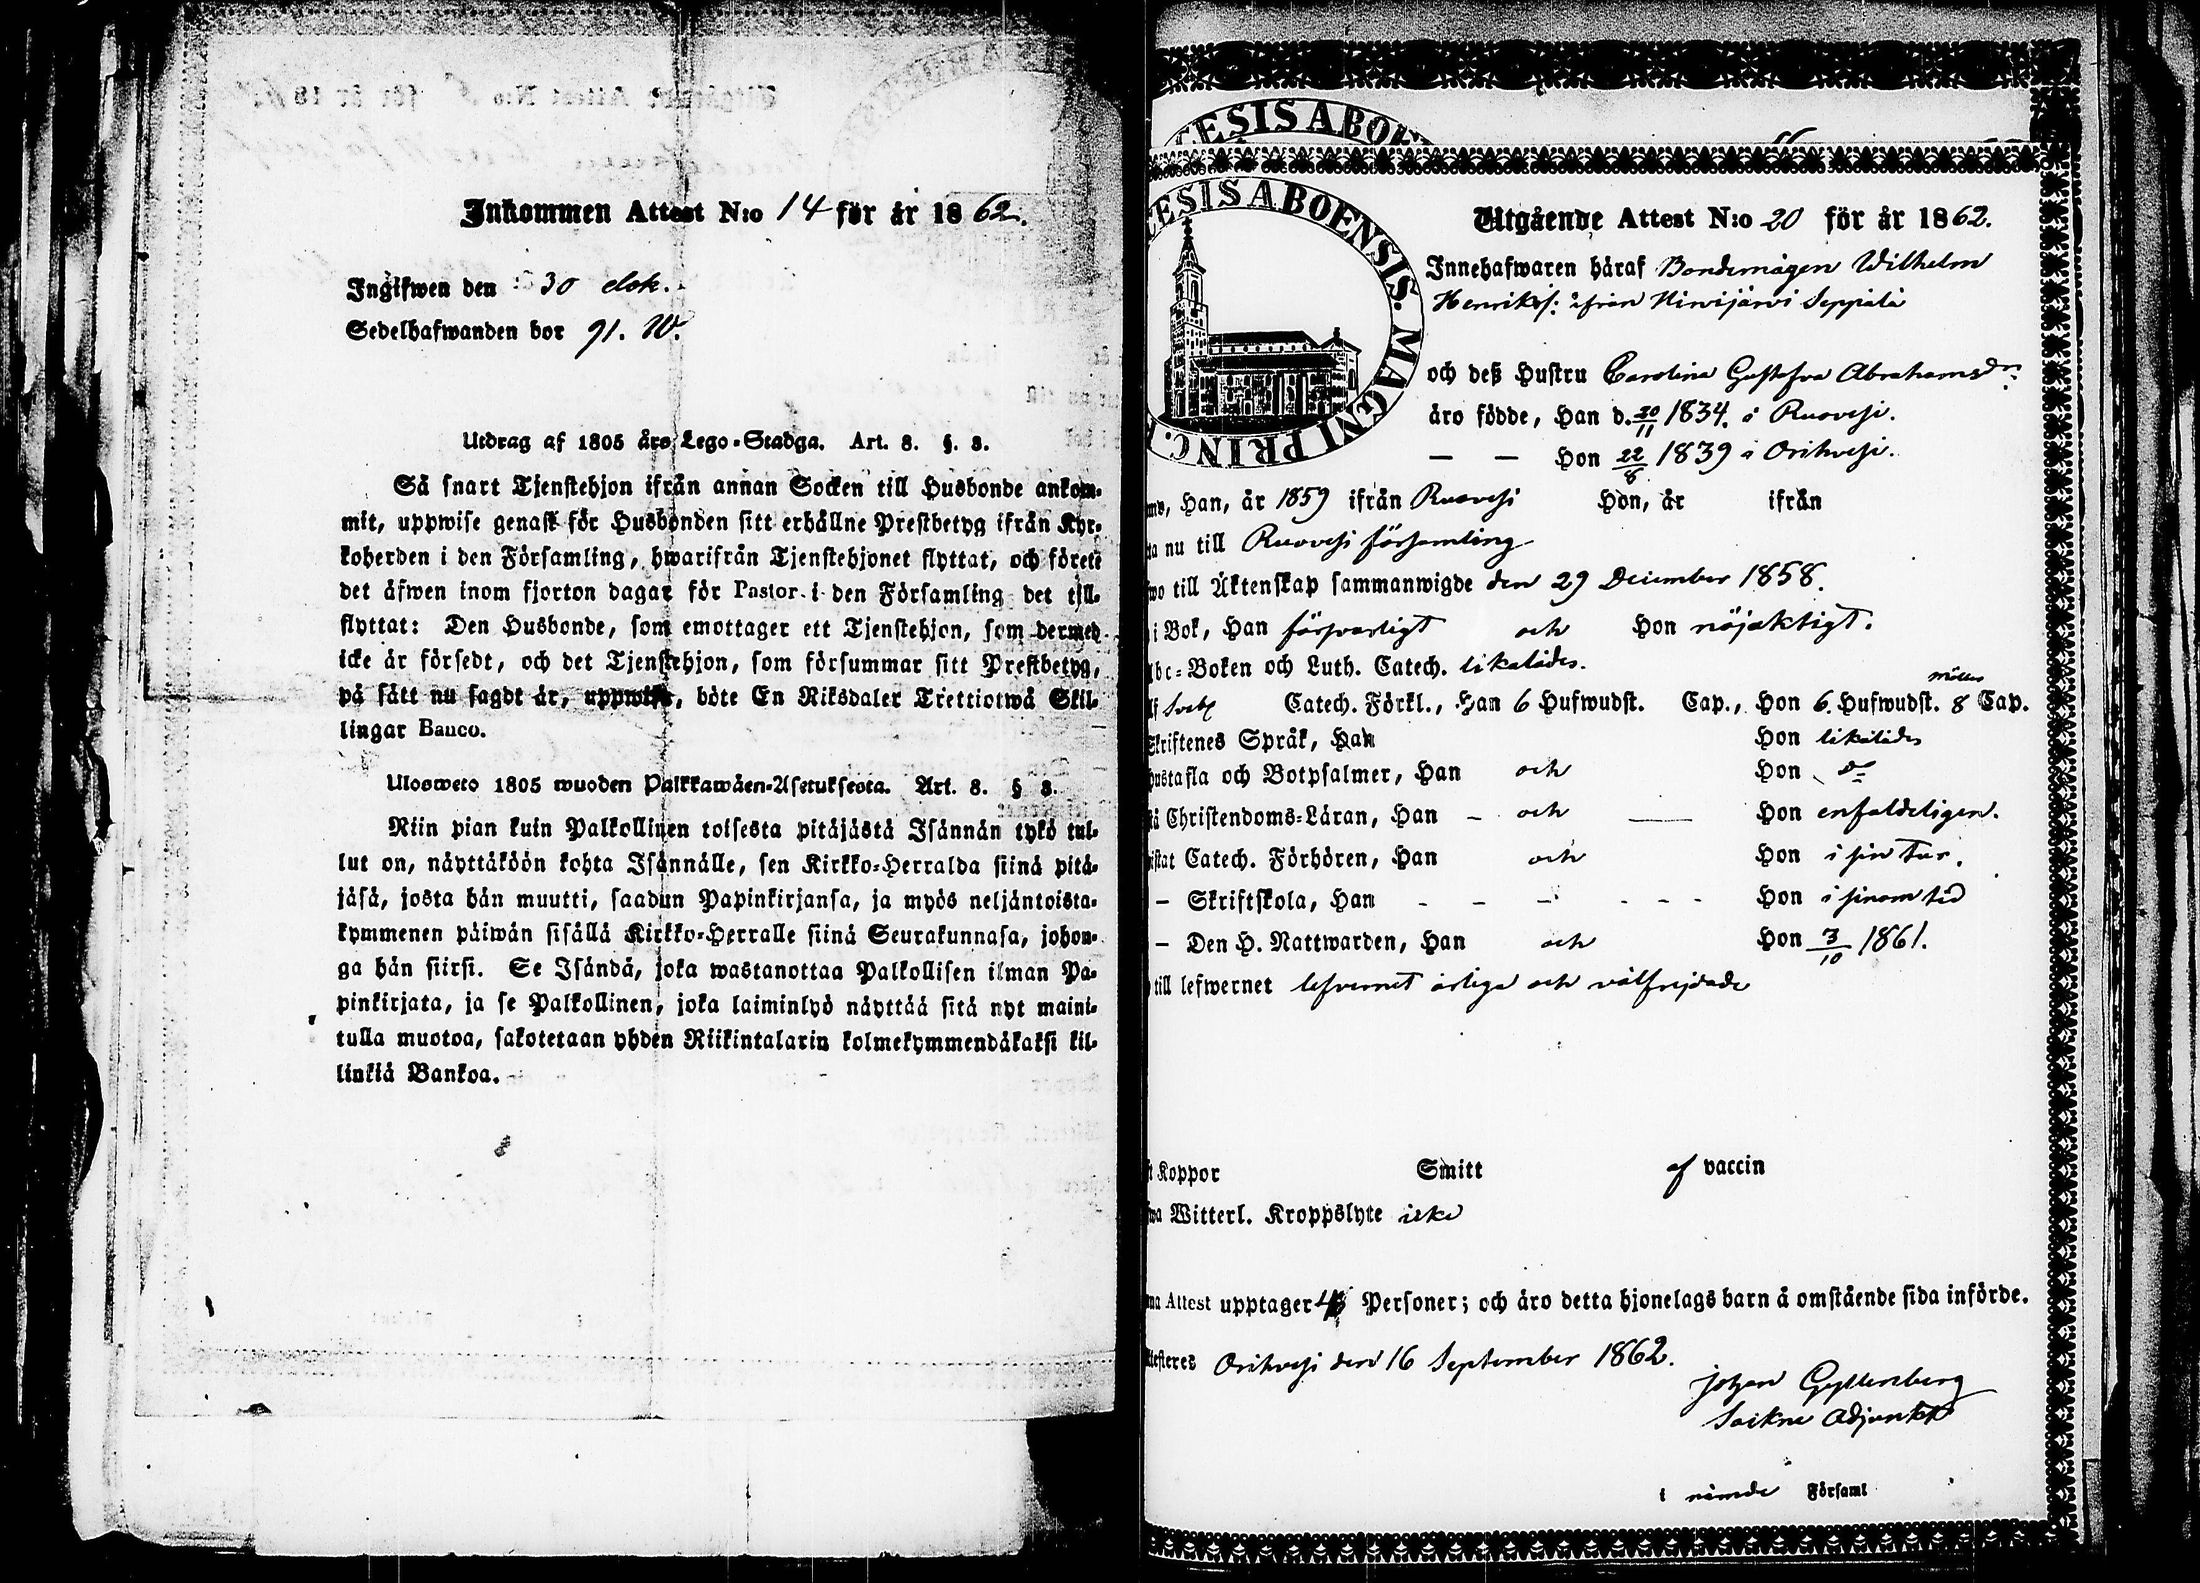 Inkommen Attest N:o 14 för år 1862.
Ingifwen den 30 dok.
Sedelhafwanden bor 91. W.
Utdrag af 1805 års Lego-Stadga. Art. 8. §. 8.
Så snart Tjenstehjon ifrån annan Socken till Husbonde ankom-
mit, uppwise genast för Husbonden sitt erhållne Prestbetyg ifrån Kyr-
koherden i den Församling, hwarifrån Tjenstehjonet flyttat, och förete
det äfwen inom fjorton dagar för Pastor i den Församling det till-
flyttat: Den Husbonde, som emottager ett Tjenstehjon, som dermed
icke är försedt, och det Tjenstehjon, som försummar sitt Prestbetyg,
på sätt nu sagdt är, uppwisa, böte En Riksdaler Trettiotwå Skil-
lingar Banco.
Ulosweto 1805 wuoden Palkkawäen-Asetuksesta. Art. 8. § 8.
Niin pian kuin Palkollinen toisesta pitäjästä Isännän tykö tul-
lut on, näyttäköön kohta Isännälle, sen Kirkko-Herralda siinä pitä-
jäsä, josta hän muutti, saadun Papinkirjansa, ja myös neljäntoista-
kymmenen päiwän sisällä Kirkko-Herralle siinä Seurakunnasa, johon-
ga hän siirsi. Se Isändä, joka wastanottaa Palkollisen ilman Pa-
pinkirjata, ja se Palkollinen, joka laiminlyö näyttää sitä nyt maini-
tulla muotoa, sakotetaan yhden Riikintalarin kolmekymmendäkaksi kil-
linkiä Bankoa.
ESIS ABOE
ESIS ABOENSIS. MAGNI PRINC.
Utgående Attest N:o 20 för år 1862.
Innehafwaren häraf Bondemågen Wilhelm
Henriks. ifrån Hirvijärvi Seppälä
och deß Hustru Carolina Gustafva Abrahamsdr.
äro födde, Han d. 20/11 1834. i Ruovesi.
— — Hon 22/8 1839 i Orihvesi.
Han, år 1859 ifrån Ruovesi Hon, år ifrån
nu till Ruovesi församling
till Äktenskap sammanwigde den 29 December 1858.
i Bok, Han försvarligt och Hon nöjaktigt.
Abc-Boken och Luth. Catech. likaledes.
Sveb. Catech. Förkl., Han 6 Hufwudst. Cap., Hon 6. Hufwudst. 8 Cap.
Skriftenes Språk, Han Hon likaledes
Hustafla och Botpsalmer, Han och Hon do
Christendoms-Läran, Han - och — Hon enfaldeligen.
Catech. Förhören, Han och Hon i sin tur.
— Skriftskola, Han - - - - - - Hon i sinom tid
— Den H. Nattwarden, Han och Hon 3/10 1861.
till lefwernet lefvernet ärliga och välfrejdade
Koppor Smitt af vaccin
Witterl. Kroppslyte icke
Attest upptager Personer; och äro detta hjonelags barn å omstående sida införde.
Orihvesi den 16 September 1862.
Johan Gyllenberg
Sockne Adjunkt
i nämde Församl